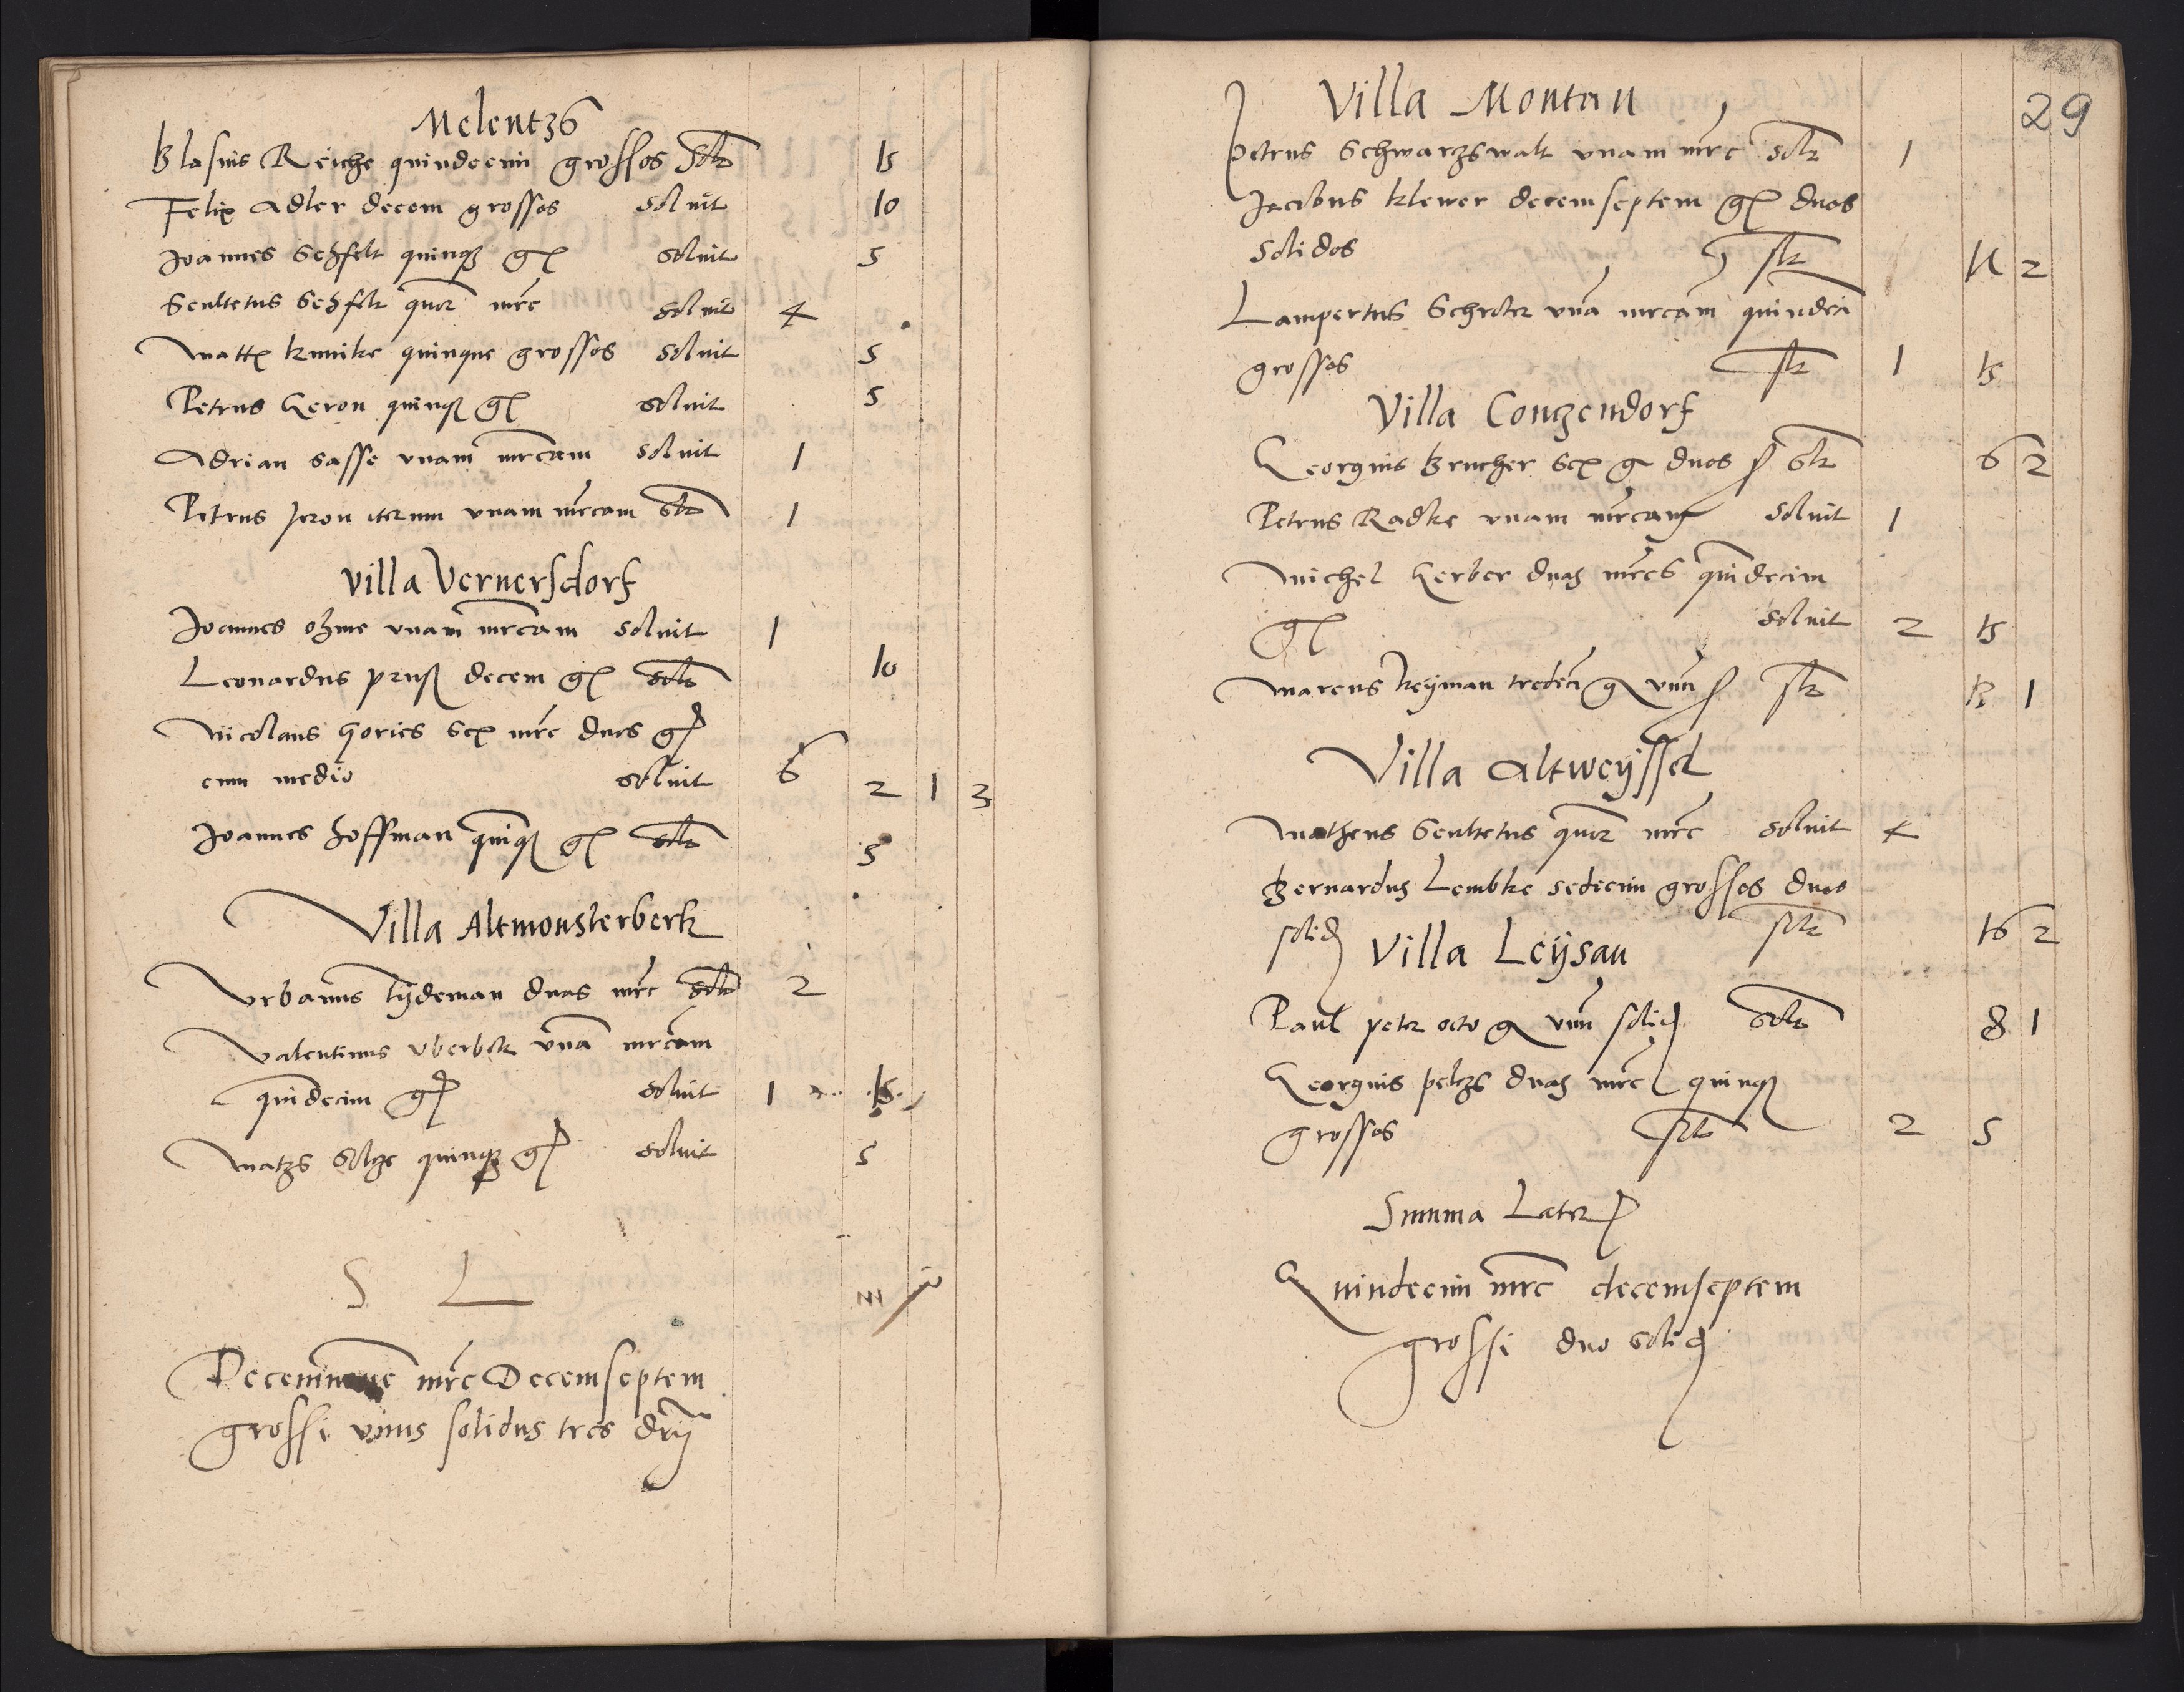 Melentzs
Blasius Reiche quindecim grossos solt 15
Felix Adler decem grossos soluit 10
Joannes Sehfelt quinq gl soluit 5
Scultetus Sehfelt quor mrc soluit 4
Matts kunike quinque grossos soluit 5
Petrus Geron quinq gl soluit 5
Adrian Sasse vnam mrcam soluit 1
Petrus Jeron iterum vnam mrcam solt 1
Villa Vernersdorf
Joannes ohme vnam mrcam soluit 1
Leonardus pruss decem gl solt 10
Nicolaus Gorics sex mrc duos gl
cum medio soluit 6 2 1 3
Joannes hoffman quinq gl solt 5
Villa Altmonsterberk
Vrbanus tydeman duas mrc solt 2
Valentinus vberbek vna mrcam
quindecim gl soluit 1 15
Matzs solze quinq gl soluit 5
S L
Decemnove mrc Decemseptem
grossi vnus solidus tres drij
29
Villa Montau
Petrus Schwarzswalt vnam mrc solt 1
Jacobus klewer decemseptem gl duos
solidos slt 17 2
Lampertus Schroter vna mrcam quindeci
grossos slt 1 15
Villa Conzendorf
Georgius Brucher sex g duos s solt 6 2
Petrus Radke vnam mrcam soluit 1
Michel Gerber duas mrcs quindecim
gl soluit 2 15
Marcus heyman tredeci g vnu s slt 13 1
Villa Altweyssel
Matheus Scultetus quor mrc soluit 4
Bernardus Lembke sedecim grossos duos
solid solt 16 2
Villa Leysau
Paul peter octo g vnu solid solt 8 1
Georgius pelzs duas mrc quinq
grossos solt 2 5
Summa Later
Quindecim mrc decemseptem
grossi duo solid